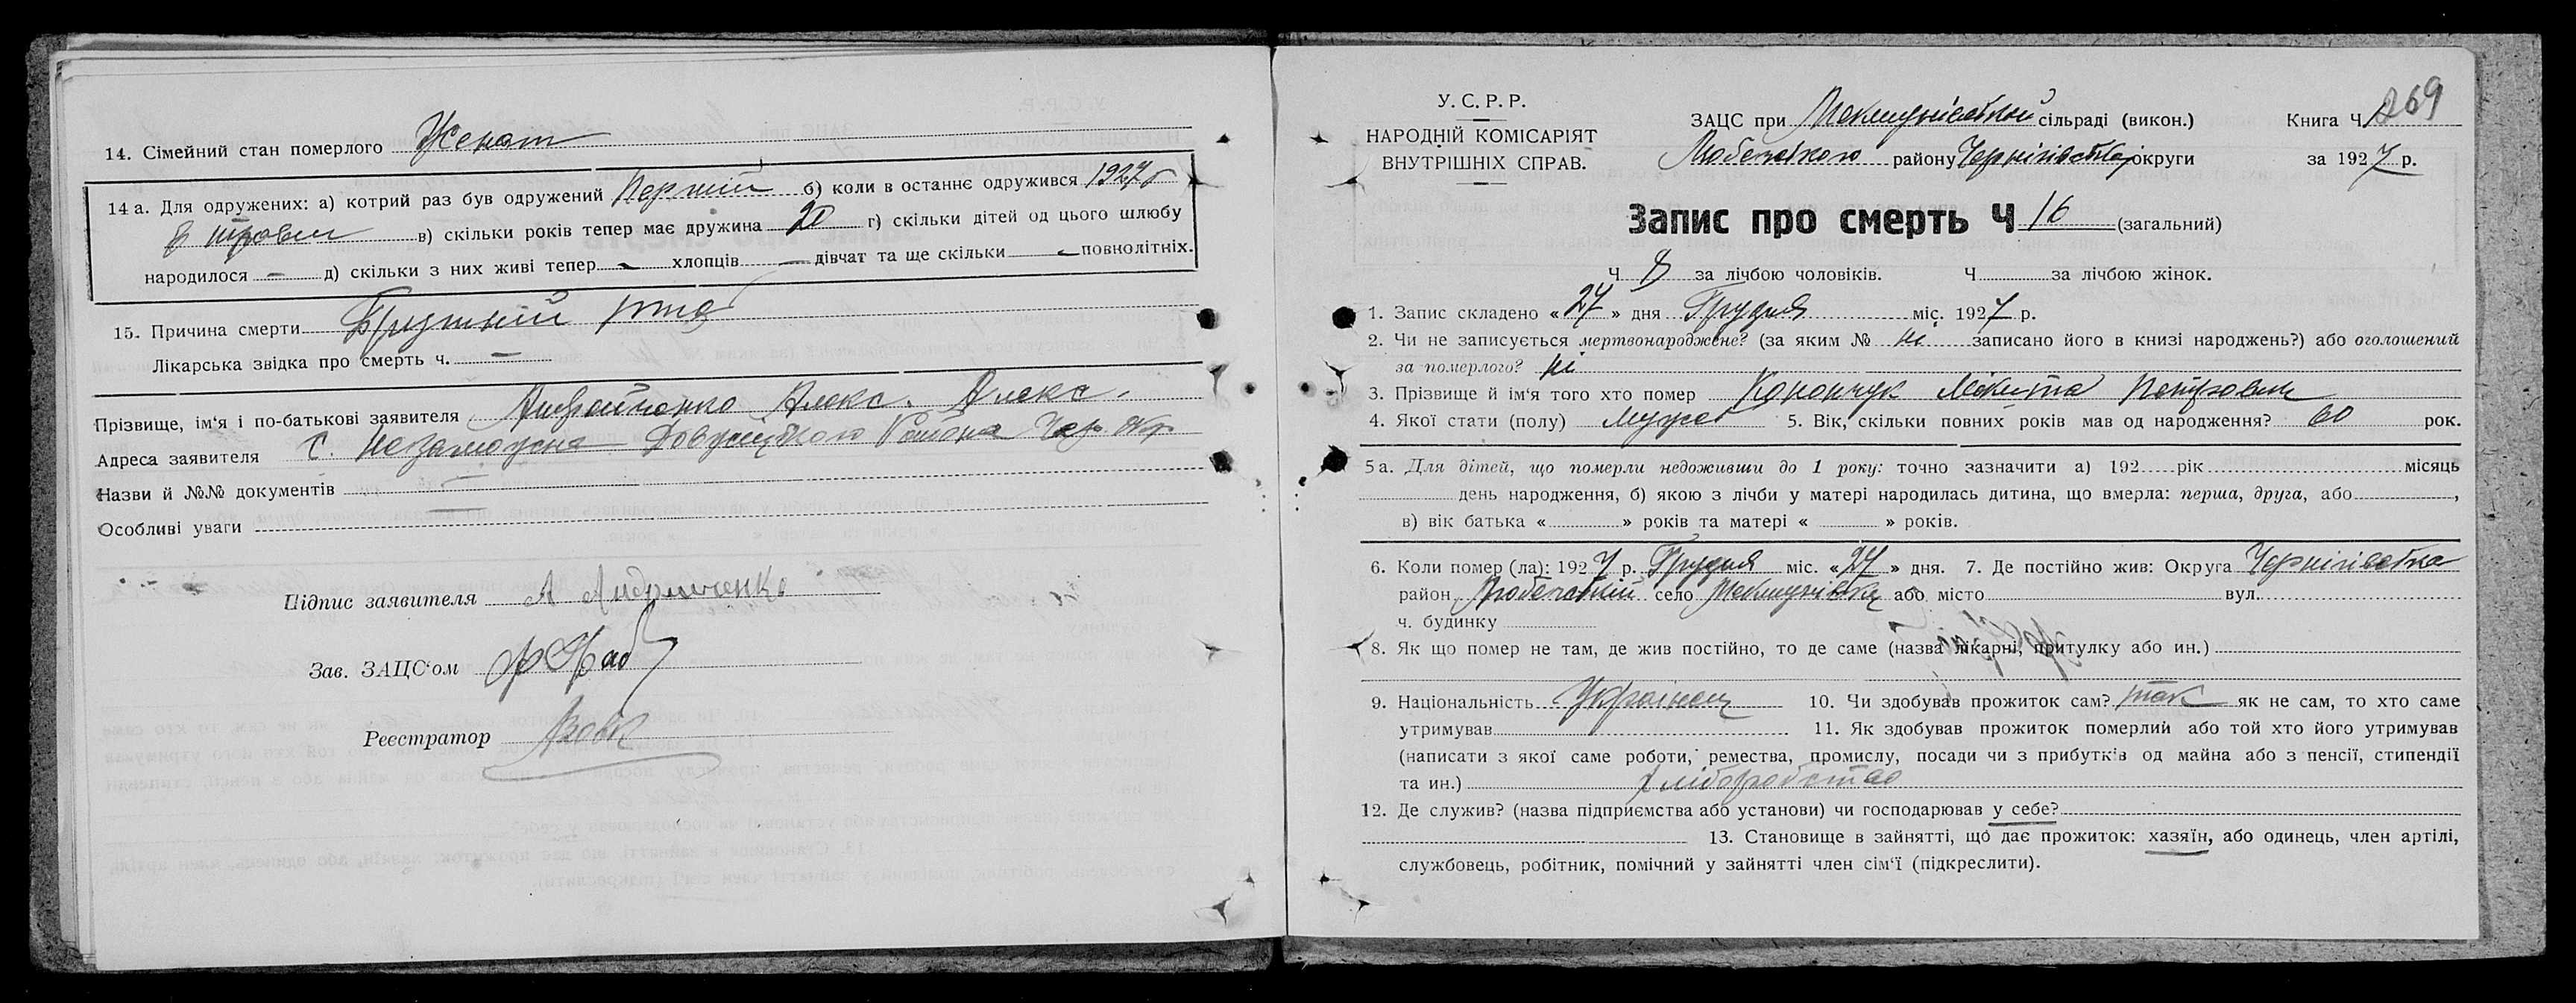 14. Сімейний стан померлого Женат
14 а. Для одружених: а) котрий раз був одружений Перший б) коли в останнє одружився 1927 г
в) скільки років тепер має дружина 20 г) скільки дітей од цього шлюбу
народилося — д) скільки з них живі тепер - хлопців — дівчат та ще скільки - повнолітніх.
15. Причина смерти
Лікарська звідка про смерть ч. —
Прізвище, ім'я і по-батькові заявителя Алекс. Алекс.
Адреса заявителя с. Незаможна
Назви й №№ документів —
Особливі уваги
Підпис заявителя А
Зав. ЗАЦС'ом
Реєстратор
269
У. С. Р. Р.
НАРОДНІЙ КОМІСАРІЯТ
ВНУТРІШНІХ СПРАВ.
ЗАЦС при сільраді (викон.) Книга Ч
району Чернігівської округи за 1927 р.
Запис про смерть Ч 16 (загальний)
Ч 8 за лічбою чоловіків. Ч за лічбою жінок.
1. Запис складено «27» дня Грудня міс. 1927 р.
2. Чи не записується мертвонароджене? (за яким № ні записано його в книзі народжень?) або оголошений
за померлого? ні
3. Прізвище й ім'я того хто помер Конончук Микита Петрович
4. Якої стати (полу) 5. Вік, скільки повних років мав од народження? 60 рок.
5 а. Для дітей, що померли недоживши до 1 року: точно зазначити а) 192 рік місяць
день народження, б) якою з лічби у матері народилась дитина, що вмерла: перша, друга, або ,
в) вік батька « » років та матері « » років.
6. Коли помер (ла): 1927 р. Грудня міс. «27» дня. 7. Де постійно жив: Округа Чернігівська
район село або місто вул.
ч. будинку
8. Як що помер не там, де жив постійно, то де саме (назва лікарні, притулку або ин.)
9. Національність Українец 10. Чи здобував прожиток сам? так як не сам, то хто саме
утримував 11. Як здобував прожиток померлий або той хто його утримував
(написати з якої саме роботи, ремества, промислу, посади чи з прибутків од майна або з пенсії, стипендії
та ин.) Хліборобство
12. Де служив? (назва підприємства або установи) чи господарював у себе?
13. Становище в зайнятті, що дає прожиток: хазяїн, або одинець, член артілі,
службовець, робітник, помічний у зайнятті член сім'ї (підкреслити).